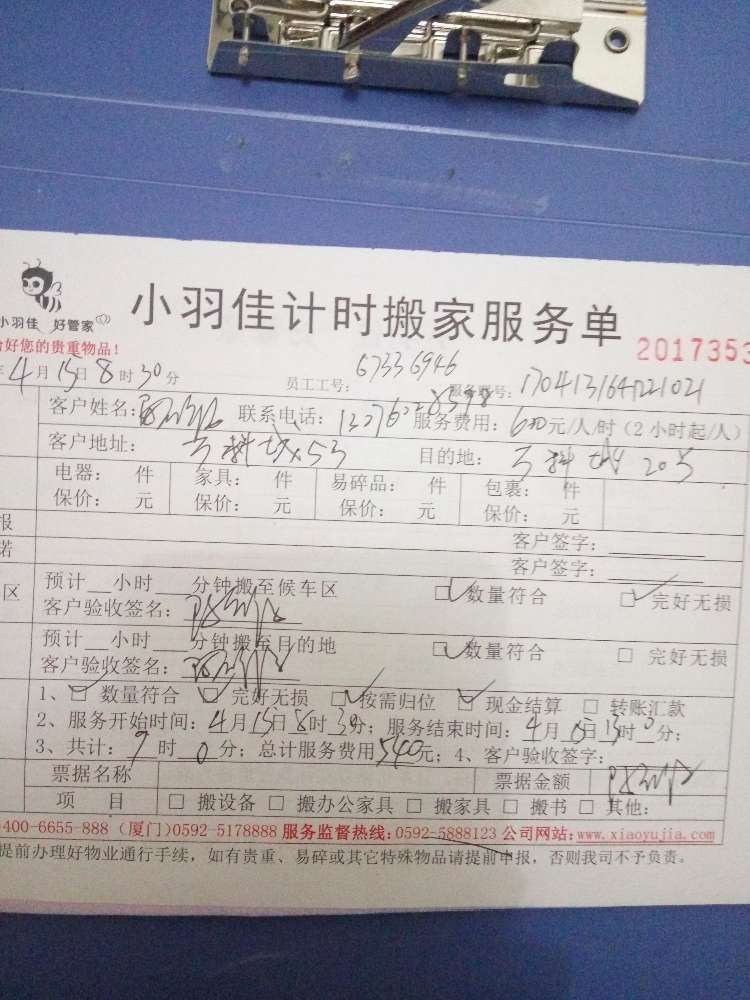 小羽佳 好管家
小羽佳计时搬家服务单
好您的贵重物品！
2017353
年4月15日8时30分 员工工号：67336946 服务账号：170413164221021
客户姓名： 联系电话： 服务费用： 元/人/时（2小时起/人）
客户地址： 目的地：
电器： 件 家具： 件 易碎品： 件 包裹： 件
保价： 元 保价： 元 保价： 元 保价： 元
报
客户签字：
诺
客户签字：
预计 小时 分钟搬至候车区 数量符合 完好无损
区
客户验收签名：
预计 小时 分钟搬至目的地 数量符合 完好无损
客户验收签名：
1、 数量符合 完好无损 按需归位 现金结算 转账汇款
2、服务开始时间：4月15日8时30分；服务结束时间：4月 日 时0分；
3、共计：9时0分；总计服务费用540元；4、客户验收签字：
票据名称 票据金额
项 目 搬设备 搬办公家具 搬家具 搬书 其他：
400-6655-888（厦门）0592-5178888 服务监督热线：0592-5888123 公司网站：www.xiaoyujia.com
提前办理好物业通行手续，如有贵重、易碎或其它特殊物品请提前申报，否则我司不予负责。